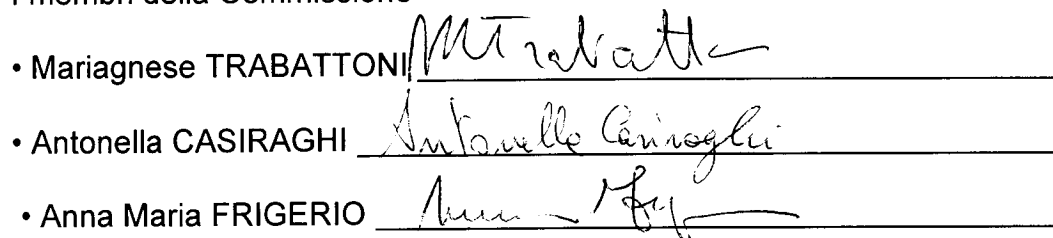 I membri della Commissione
• Mariagnese TRABATTONI MTrabatt
• Antonella CASIRAGHI Antonella Casiraghi
• Anna Maria FRIGERIO